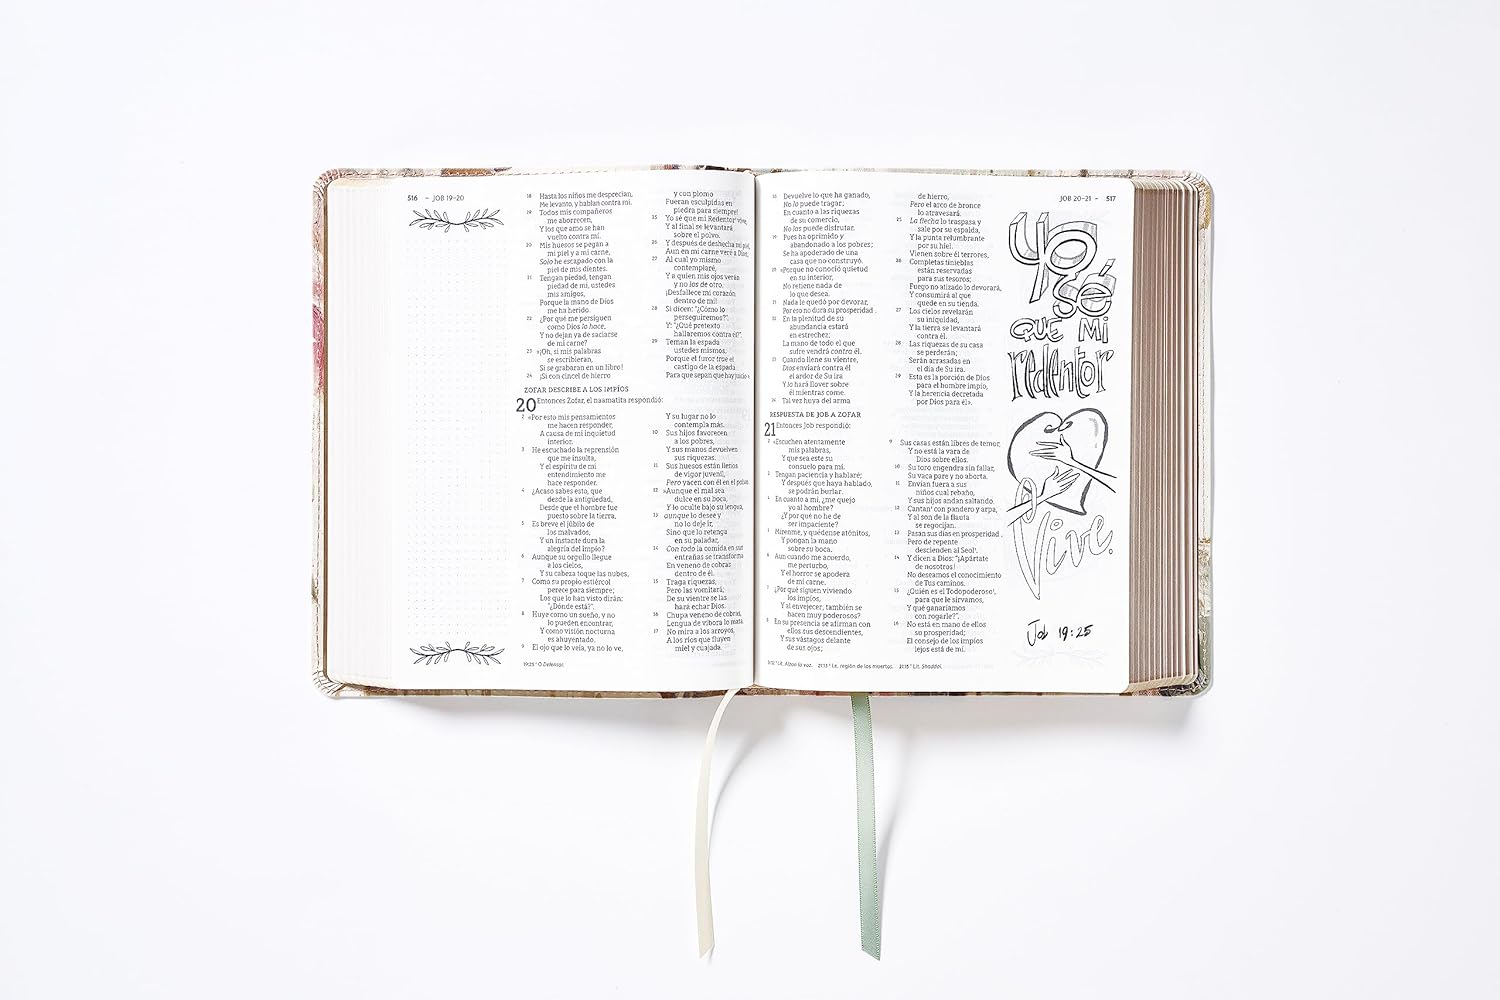 516 – JOB 19–20
18 Hasta los niños me desprecian,
Me levanto, y hablan contra mí.
19 Todos mis compañeros
me aborrecen,
Y los que amo se han
vuelto contra mí.
20 Mis huesos se pegan a
mi piel y a mi carne,
Solo he escapado con la
piel de mis dientes.
21 Tengan piedad, tengan
piedad de mí, ustedes
mis amigos,
Porque la mano de Dios
me ha herido.
22 ¿Por qué me persiguen
como Dios lo hace,
Y no dejan ya de saciarse
de mi carne?
23 »¡Oh, si mis palabras
se escribieran,
Si se grabaran en un libro!
24 ¡Si con cincel de hierro
y con plomo
Fueran esculpidas en
piedra para siempre!
25 Yo sé que mi Redentor vive,
Y al final se levantará
sobre el polvo.
26 Y después de deshecha mi piel,
Aun en mi carne veré a Dios,
27 Al cual yo mismo
contemplaré,
Y a quien mis ojos verán
y no los de otro.
¡Desfallece mi corazón
dentro de mí!
28 Si dicen: "¿Cómo lo
perseguiremos?".
Y: "¿Qué pretexto
hallaremos contra él?".
29 Teman la espada
ustedes mismos,
Porque el furor trae el
castigo de la espada
Para que sepan que hay juicio».
ZOFAR DESCRIBE A LOS IMPÍOS
20 Entonces Zofar, el naamatita respondió:
2 «Por esto mis pensamientos
me hacen responder,
A causa de mi inquietud
interior.
3 He escuchado la reprensión
que me insulta,
Y el espíritu de mi
entendimiento me
hace responder.
4 ¿Acaso sabes esto, que
desde la antigüedad,
Desde que el hombre fue
puesto sobre la tierra,
5 Es breve el júbilo de
los malvados,
Y un instante dura la
alegría del impío?
6 Aunque su orgullo llegue
a los cielos,
Y su cabeza toque las nubes,
7 Como su propio estiércol
perece para siempre;
Los que lo han visto dirán:
"¿Dónde está?".
8 Huye como un sueño, y no
lo pueden encontrar,
Y como visión nocturna
es ahuyentado.
9 El ojo que lo veía, ya no lo ve,
Y su lugar no lo
contempla más.
10 Sus hijos favorecen
a los pobres,
Y sus manos devuelven
sus riquezas.
11 Sus huesos están llenos
de vigor juvenil,
Pero yacen con él en el polvo.
12 »Aunque el mal sea
dulce en su boca,
Y lo oculte bajo su lengua,
13 aunque lo desee y
no lo deje ir,
Sino que lo retenga
en su paladar,
14 Con todo la comida en sus
entrañas se transforma
En veneno de cobras
dentro de él.
15 Traga riquezas,
Pero las vomitará;
De su vientre se las
hará echar Dios.
16 Chupa veneno de cobras,
Lengua de víbora lo mata.
17 No mira a los arroyos,
A los ríos que fluyen
miel y cuajada.
19:25 O Defensor.
JOB 20–21 – 517
18 Devuelve lo que ha ganado,
No lo puede tragar;
En cuanto a las riquezas
de su comercio,
No las puede disfrutar.
19 Pues ha oprimido y
abandonado a los pobres;
Se ha apoderado de una
casa que no construyó.
20 »Porque no conoció quietud
en su interior,
No retiene nada de
lo que desea.
21 Nada le quedó por devorar,
Por eso no dura su prosperidad.
22 En la plenitud de su
abundancia estará
en estrechez;
La mano de todo el que
sufre vendrá contra él.
23 Cuando llene su vientre,
Dios enviará contra él
el ardor de Su ira
Y lo hará llover sobre
él mientras come.
24 Tal vez huya del arma
de hierro,
Pero el arco de bronce
lo atravesará.
25 La flecha lo traspasa y
sale por su espalda,
Y la punta relumbrante
por su hiel.
Vienen sobre él terrores,
26 Completas tinieblas
están reservadas
para sus tesoros;
Fuego no atizado lo devorará,
Y consumirá al que
quede en su tienda.
27 Los cielos revelarán
su iniquidad,
Y la tierra se levantará
contra él.
28 Las riquezas de su casa
se perderán;
Serán arrasadas en
el día de Su ira.
29 Esta es la porción de Dios
para el hombre impío,
Y la herencia decretada
por Dios para él».
RESPUESTA DE JOB A ZOFAR
21 Entonces Job respondió:
2 «Escuchen atentamente
mis palabras,
Y que sea este su
consuelo para mí.
3 Tengan paciencia y hablaré;
Y después que haya hablado,
se podrán burlar.
4 En cuanto a mí, ¿me quejo
yo al hombre?
¿Y por qué no he de
ser impaciente?
5 Mírenme, y quédense atónitos,
Y pongan la mano
sobre su boca.
6 Aun cuando me acuerdo,
me perturbo,
Y el horror se apodera
de mi carne.
7 ¿Por qué siguen viviendo
los impíos,
Y al envejecer, también se
hacen muy poderosos?
8 En su presencia se afirman con
ellos sus descendientes,
Y sus vástagos delante
de sus ojos;
9 Sus casas están libres de temor,
Y no está la vara de
Dios sobre ellos.
10 Su toro engendra sin fallar,
Su vaca pare y no aborta.
11 Envían fuera a sus
niños cual rebaño,
Y sus hijos andan saltando.
12 Cantan con pandero y arpa,
Y al son de la flauta
se regocijan.
13 Pasan sus días en prosperidad,
Pero de repente
descienden al Seol.
14 Y dicen a Dios: "¡Apártate
de nosotros!
No deseamos el conocimiento
de Tus caminos.
15 ¿Quién es el Todopoderoso,
para que le sirvamos,
Y qué ganaríamos
con rogarle?".
16 No está en mano de ellos
su prosperidad;
El consejo de los impíos
lejos está de mí.
21:12 Lit. Alzan la voz. 21:13 I.e. región de los muertos. 21:15 Lit. Shaddai.
Yo
sé
QUE Mi
redentor
Vive.
Job 19:25